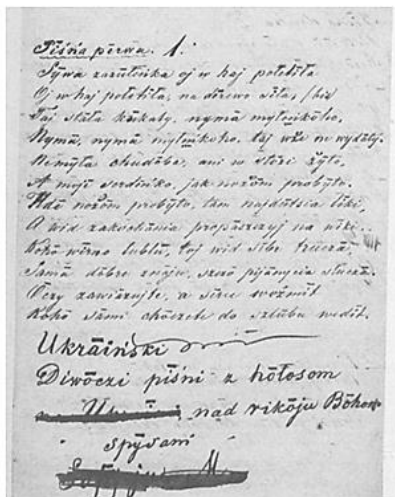 Piśńa perwa. 1.
Sywa zazuleńka oj w haj połetiła
Oj w haj połetiła, na dżewo siła, /bis
Taj stała kúkaty, nymá myłeńkoho,
Nymá, nymá myłeńkoho, taj wże ne wydáty.
Ne myła chudóba, ani w stozi żýto,
A mojé serdeńko, jak nożóm probýto.
Hde nożóm probýto, tam najdútsia líki,
A wid zakochánia propászczyj na wiki.
Kohó wírno lublú, toj wid sébe
Samá dobre znáju, szczo pijanycia
Óczy zawiazujte, a sérce wożmit
Kohó sámi chóczete do szlúbu wedít.
Ukráiński
Diwóczi piśni z hółosom
nad rikóju Bóhom
spýsani